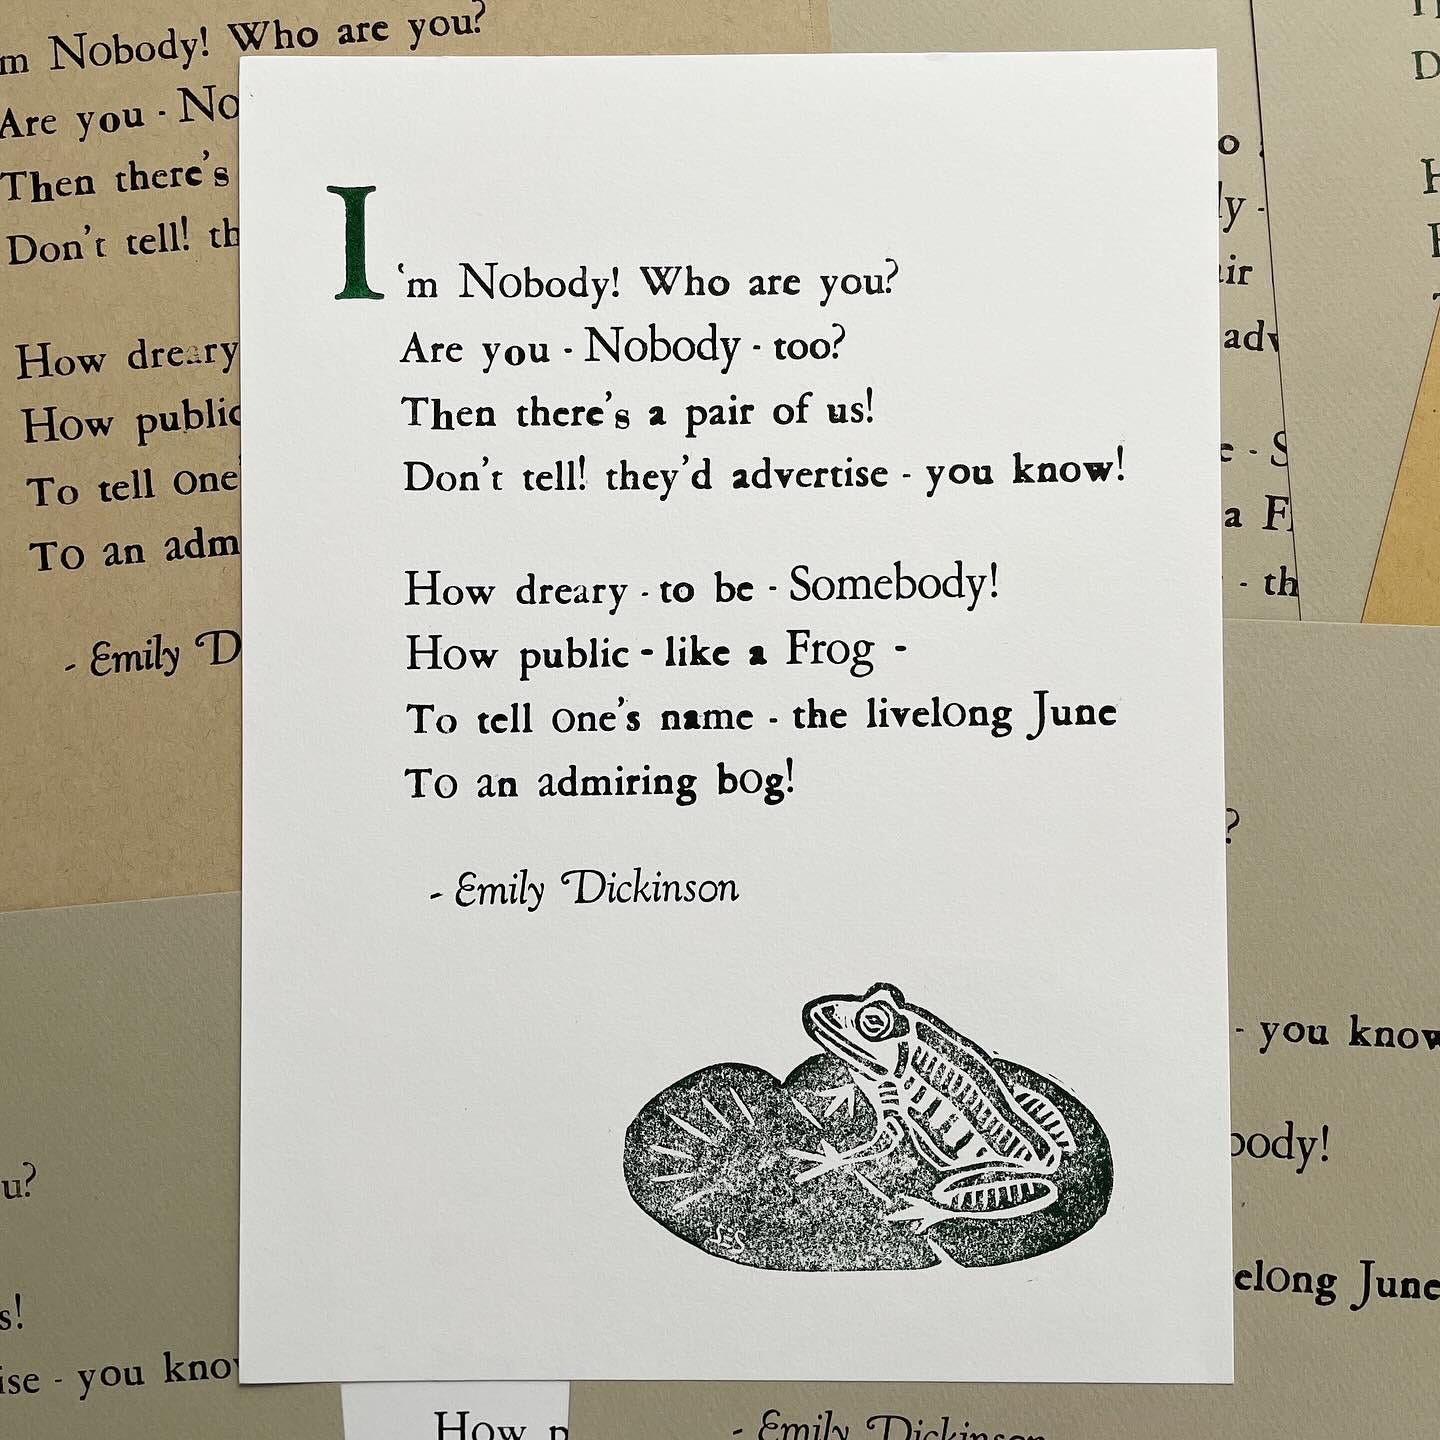 I'm Nobody! Who are you?
Are you - Nobody - too?
Then there's a pair of us!
Don't tell! they'd advertise - you know!
How dreary - to be - Somebody!
How public - like a Frog -
To tell one's name - the livelong June
To an admiring bog!
- Emily Dickinson
SES
m Nobody! Who are you?
Are you - No
Then there's
Don't tell! th
How dreary
How public
To tell one'
To an adm
- Emily D
u?
s!
ise - you know
How p
- Emily Dickinson
o
ly -
ir
adv
e - S
a F
- th
D
H
?
- you know
body!
elong June